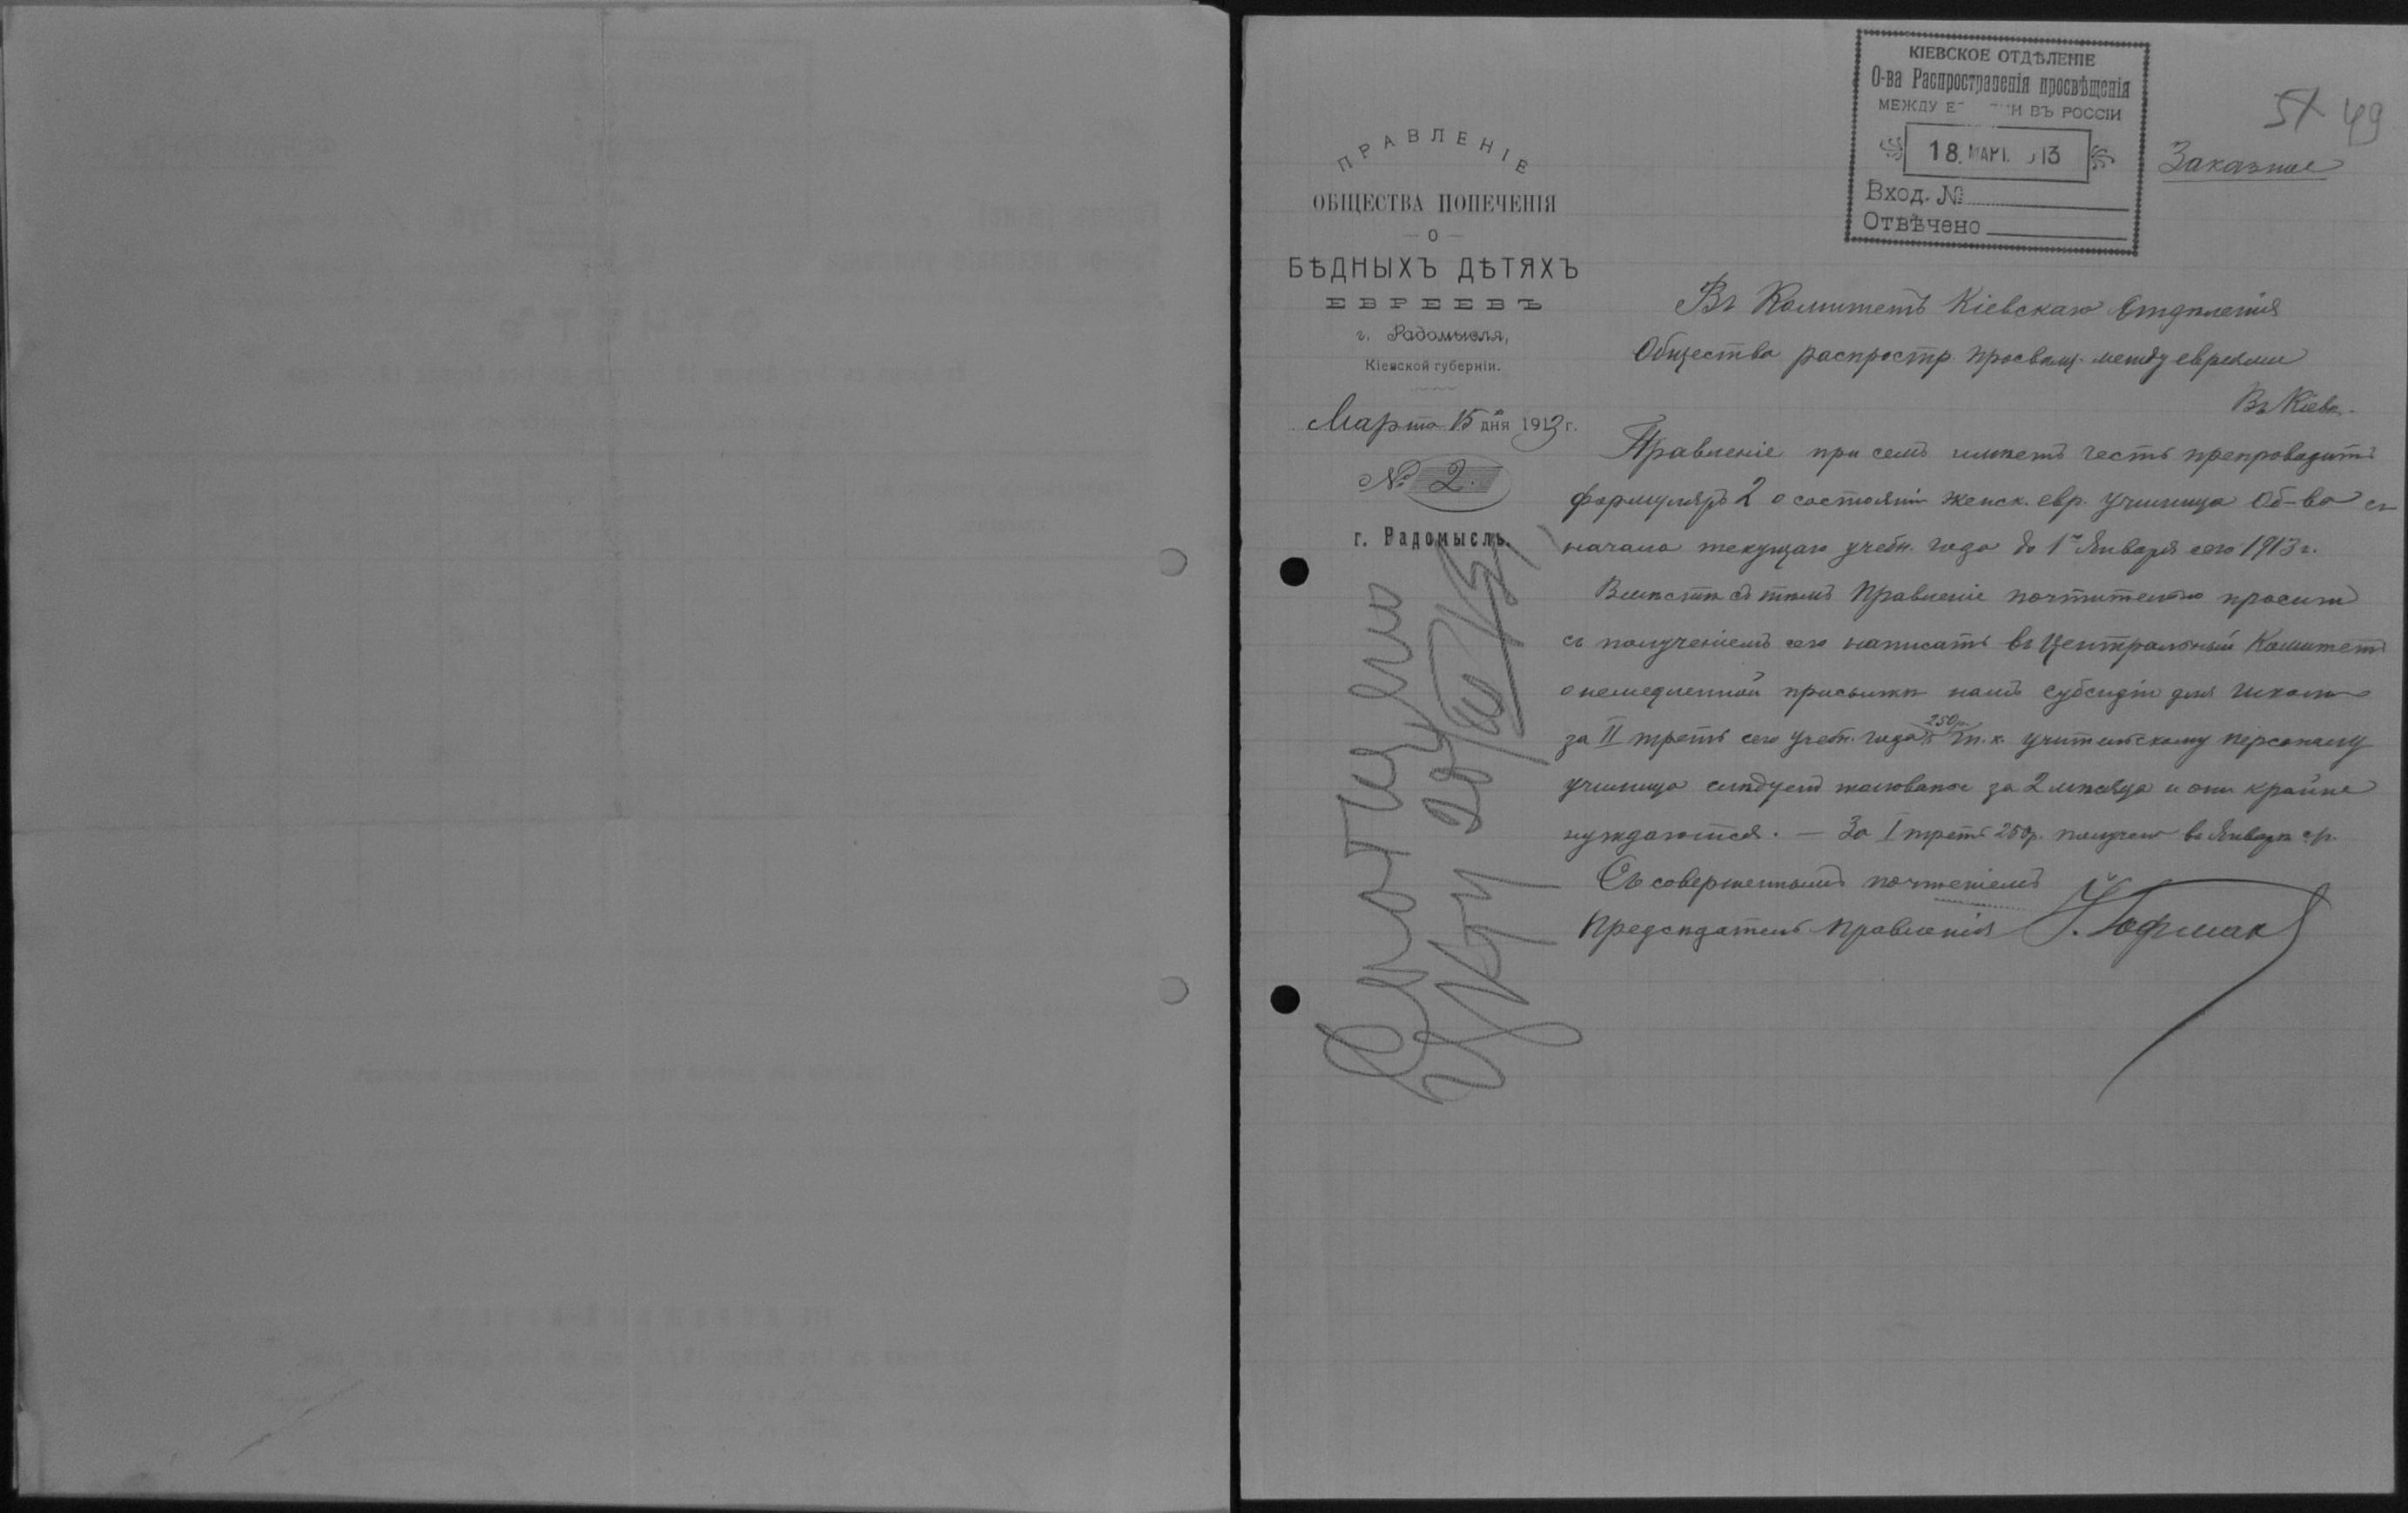 КІЕВСКОЕ ОТДѢЛЕНІЕ
О-ва Распространенія просвѣщенія
МЕЖДУ Е И ВЪ РОССІИ
18. МАРТ. 13
Вход. №
Отвѣчено
49
Заказное
ПРАВЛЕНІЕ
ОБЩЕСТВА ПОПЕЧЕНІЯ
О
БѢДНЫХЪ ДѢТЯХЪ
ЕВРЕЕВЪ
г. Радомысля,
Кіевской губерніи.
Марта 15 дня 1913 г.
№ 2.
г. Радомысль.
Въ Комитетъ Кіевскаго Отдѣленія
Общества распростр. просвѣщ. между евреями
Въ Кіевѣ.
Правленіе при семъ имѣетъ честь препроводить
формуляръ 2 о состояніи женск. евр. училища Об-ва съ
начала текущаго учебн. года до 1го Января сего 1913 г.
Вмѣстѣ съ тѣмъ Правленіе почтительно проситъ
съ полученіемъ сего написать въ Центральный Комитетъ
о немедленной присылкѣ намъ субсидіи для школы
за II треть сего учебн. года 250 р. т. к. учительскому персоналу
училища слѣдуетъ жалованье за 2 мѣсяца и они крайне
нуждаются. — За I треть 250 р. получено въ Январѣ с/г.
Съ совершеннымъ почтеніемъ
Предсѣдатель Правленія Гофман